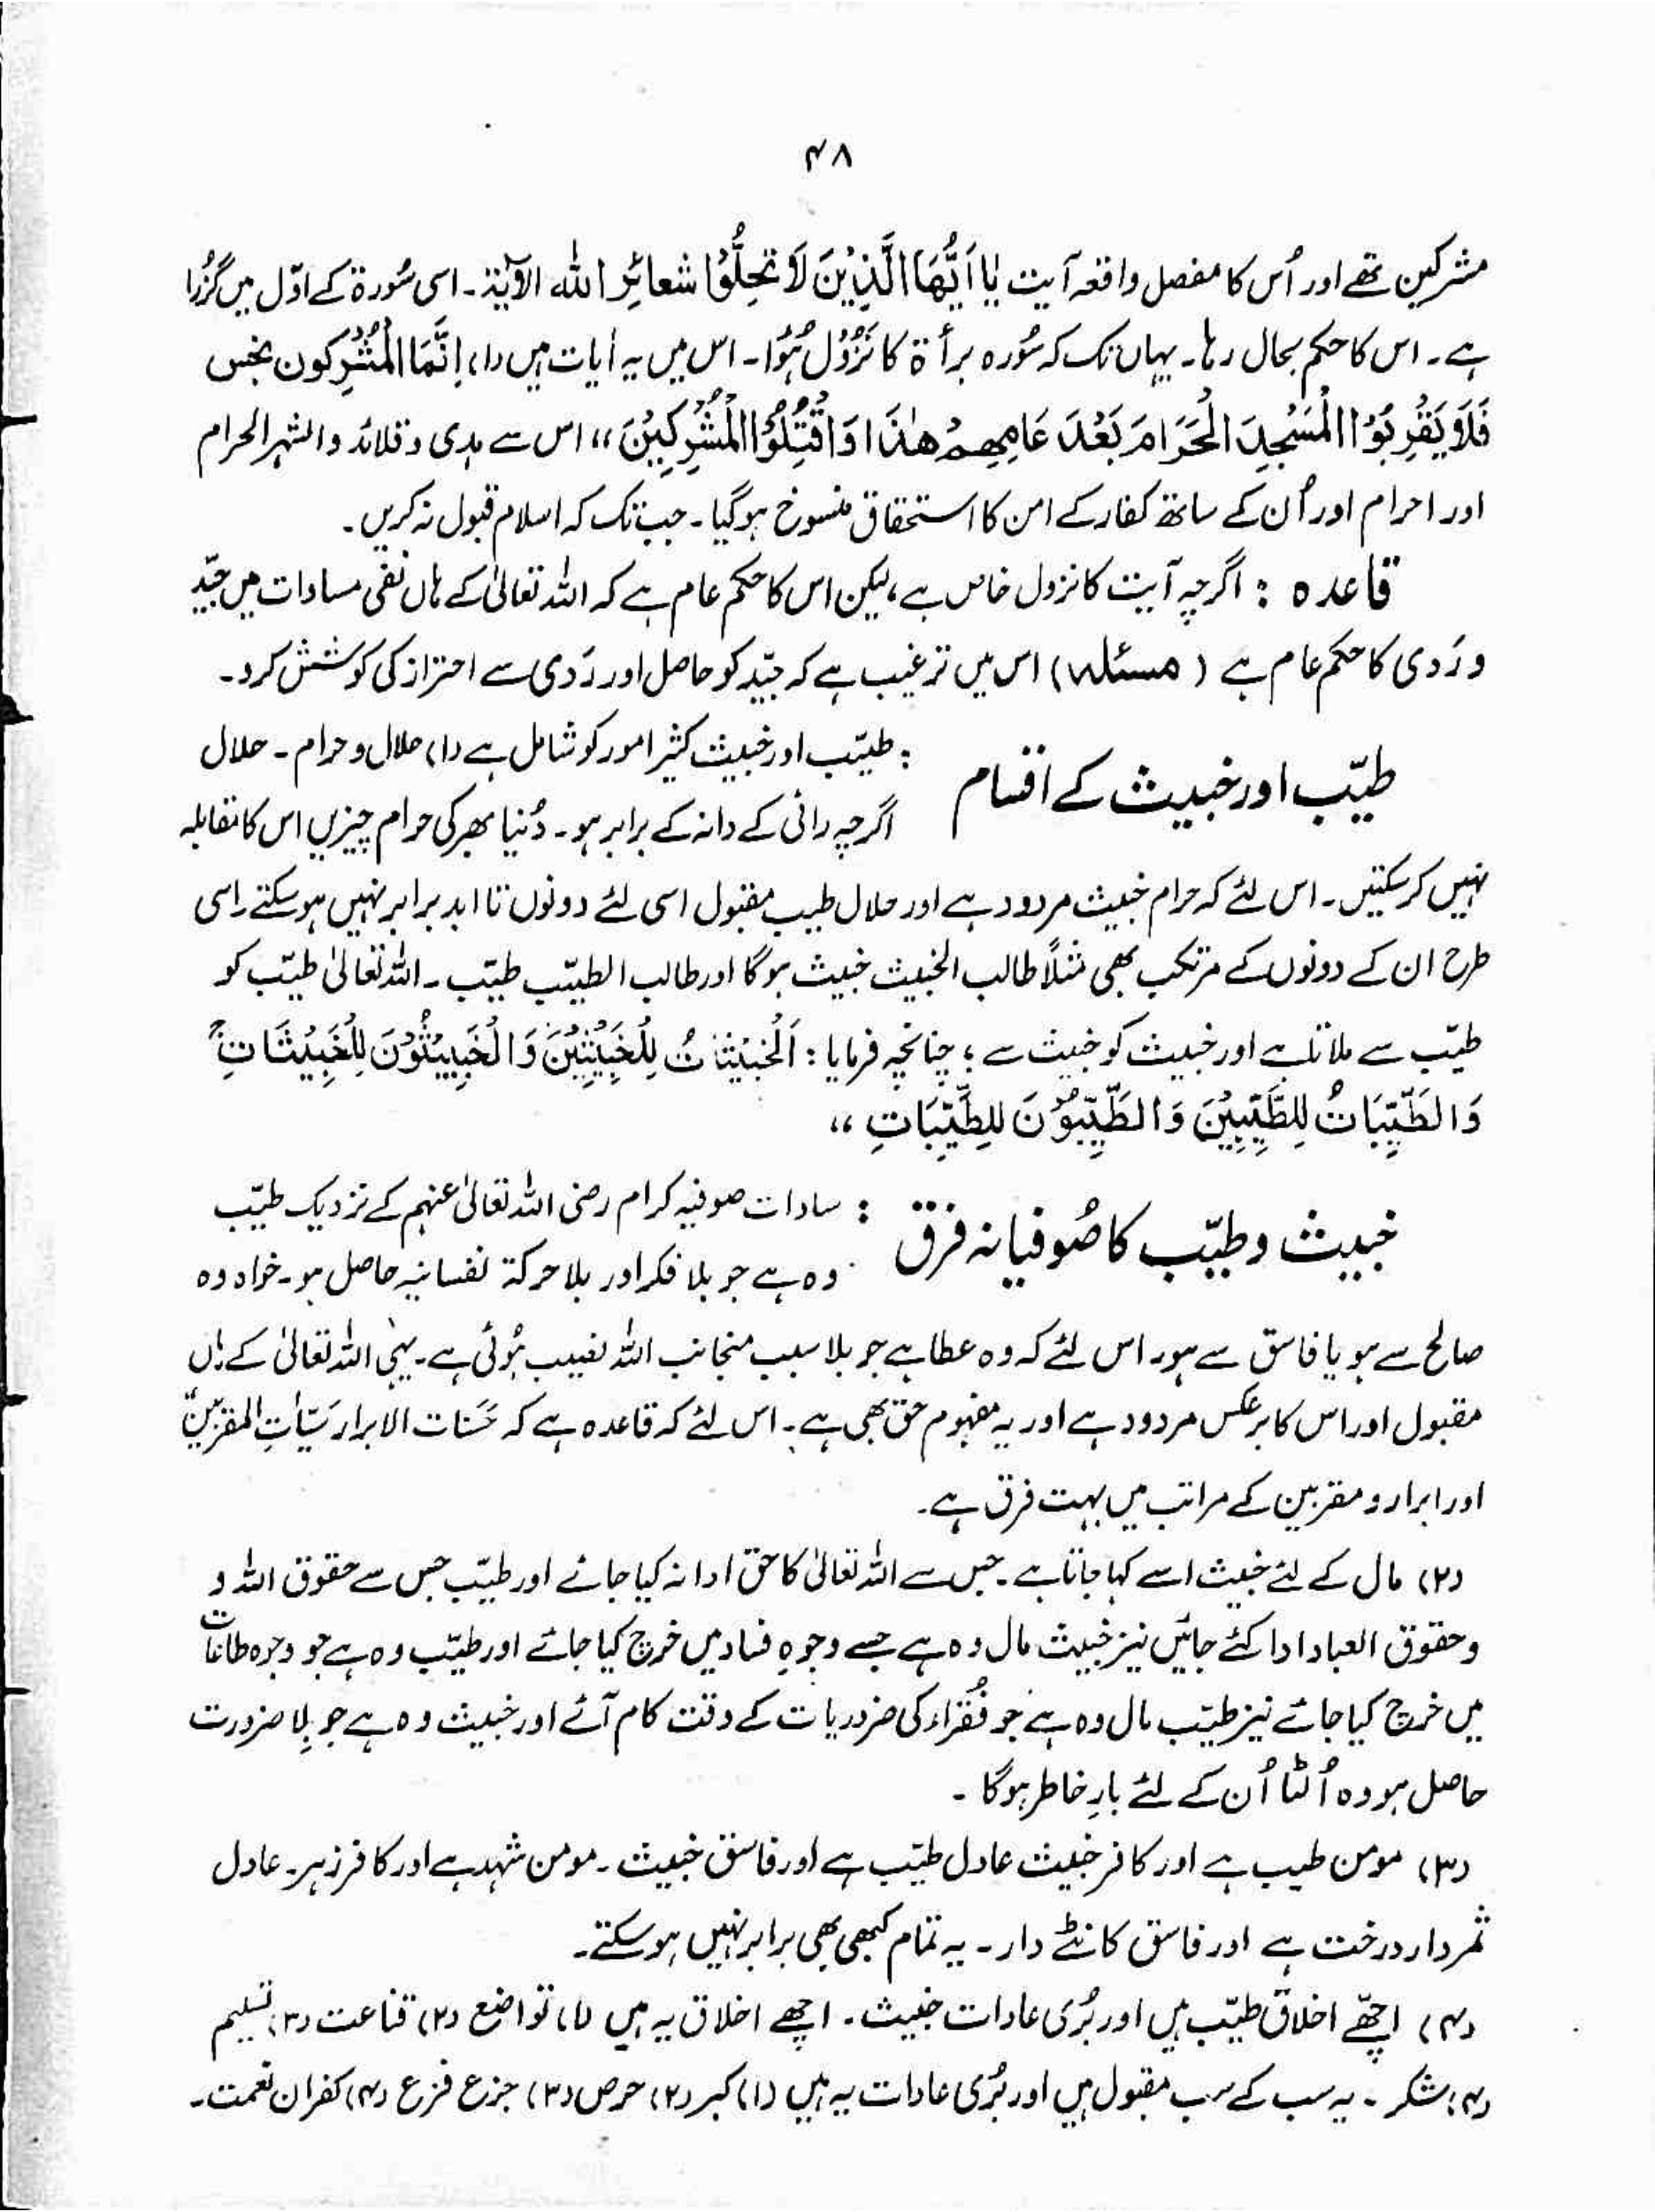 ۴۸
مشرکین تھے اور اُس کا مفصل واقعہ آیت یٰا اَیُّهَا الَّذِیْنَ لَا تحِلُّوْا شعائِرِ الله الآیَة۔ اسی سُورۃ کے اوّل میں گُزرا
ہے۔ اس کا حکم بحال رہا۔ یہاں تک کہ سُورہ برأۃ کا نُزُوْل ہُوَا۔ اس میں یہ آیات ہیں (۱) اِنَّمَا الْمُشْرِکون نجس
فَلَا یَقْرِبُوْا الْمَسْجِدَ الْحَرَامَ بَعْدَ عَامِهِمْ هٰذَا وَاقْتُلُوْا الْمُشْرِکِیْنَ ،، اس سے ہدی و قلائد والشہر الحرام
اور احرام اور اُن کے ساتھ کفار کے امن کا استحقاق منسوخ ہوگیا۔ جب تک کہ اسلام قبول نہ کریں۔
قاعدہ : اگرچہ آیت کا نزول خاص ہے، لیکن اس کا حکم عام ہے کہ اللہ تعالیٰ کے ہاں نفی مساوات میں جیّد
و رَدی کا حکم عام ہے (مسئلہ) اس میں ترغیب ہے کہ جیّد کو حاصل اور رَدی سے احتراز کی کوشش کرو۔
طیّب اور خبیث کے اقسام : طیّب اور خبیث کثیر امور کو شامل ہے (۱) حلال و حرام۔ حلال
اگرچہ رائی کے دانہ کے برابر ہو۔ دُنیا بھر کی حرام چیزیں اس کا مقابلہ
نہیں کر سکتیں۔ اس لئے کہ حرام خبیث مردود ہے اور حلال طیب مقبول اسی لئے دونوں تا ابد برابر نہیں ہو سکتے اسی
طرح ان کے دونوں کے مرتکب بھی مثلاً طالب الخبیث خبیث ہوگا اور طالب الطیّب طیّب۔ اللہ تعالیٰ طیّب کو
طیّب سے ملاتا ہے اور خبیث کو خبیث سے ؛ چنانچہ فرمایا : اَلْخَبِیْثَاتُ لِلْخَبِیْثِیْنَ وَالْخَبِیْثُوْنَ لِلْخَبِیْثَاتِ
وَالطَّیِّبَاتُ لِلطَّیِّبِیْنَ وَالطَّیِّبُوْنَ لِلطَّیِّبَاتِ ،،
خبیث و طیّب کا صُوفیانہ فرق : سادات صوفیہ کرام رضی اللہ تعالیٰ عنہم کے نزدیک طیّب
وہ ہے جو بلا فکر اور بلا حرکۃ نفسانیہ حاصل ہو۔ خواہ وہ
صالح سے ہو یا فاسق سے ہو۔ اس لئے کہ وہ عطا ہے جو بلا سبب منجانب اللہ نصیب ہُوئی ہے۔ یہی اللہ تعالیٰ کے ہاں
مقبول اور اس کا برعکس مردود ہے اور یہ مفہوم حق بھی ہے۔ اس لئے کہ قاعدہ ہے کہ حَسَنات الابرار سَیّاٰتِ المقربینؒ
اور ابرار و مقربین کے مراتب میں بہت فرق ہے۔
(۲) مال کے لئے خبیث اسے کہا جاتا ہے۔ جس سے اللہ تعالیٰ کا حق ادا نہ کیا جائے اور طیّب جس سے حقوق اللہ و
و حقوق العباد ادا کئے جائیں نیز خبیث مال وہ ہے جسے وجوہِ فساد میں خرچ کیا جائے اور طیّب وہ ہے جو وجوہ طاعات
میں خرچ کیا جائے نیز طیّب مال وہ ہے جو فُقراء کی ضروریات کے وقت کام آئے اور خبیث وہ ہے جو بِلا ضرورت
حاصل ہو وہ اُلٹا اُن کے لئے بارِ خاطر ہوگا ۔
(۳) مومن طیب ہے اور کافر خبیث عادل طیّب ہے اور فاسق خبیث ۔ مومن شہد ہے اور کافر زہر۔ عادل
ثمردار درخت ہے اور فاسق کانٹے دار ۔ یہ تمام کبھی بھی برابر نہیں ہو سکتے۔
(۴) اچھّے اخلاق طیّب ہیں اور بُری عادات خبیث ۔ اچھے اخلاق یہ ہیں (۱) تواضع (۲) قناعت (۳) تسلیم
(۴) شکر ۔ یہ سب کے سب مقبول ہیں اور بُری عادات یہ ہیں (۱) کبر (۲) حرص (۳) جزع فزع (۴) کفران نعمت۔